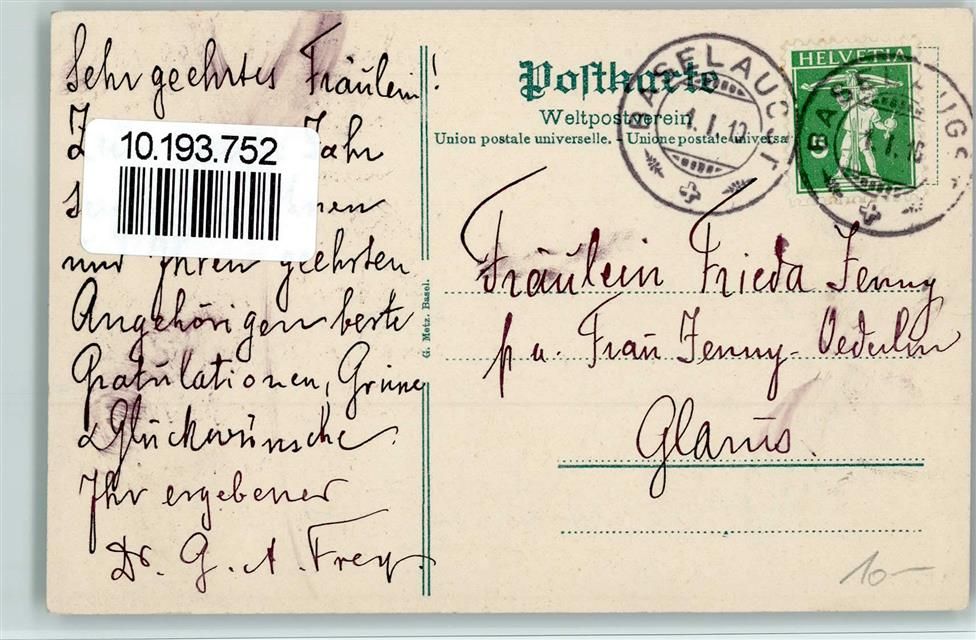 Sehr geehrtes Fräulein!
Jahr
und Ihren geehrten
Angehörigen beste
Gratulationen,
& Glückwünsche.
Ihr ergebener
Dr. G. A. Frey.
10.193.752
Postkarte
Weltpostverein
Union postale universelle. - Unione postale universa
G. Metz. Basel.
BASEL AUG
1. I. 1
HELVETIA
BASEL AUG
Fräulein Frieda Jenny
Frau Jenny-Oederlin
Glarus.
10—